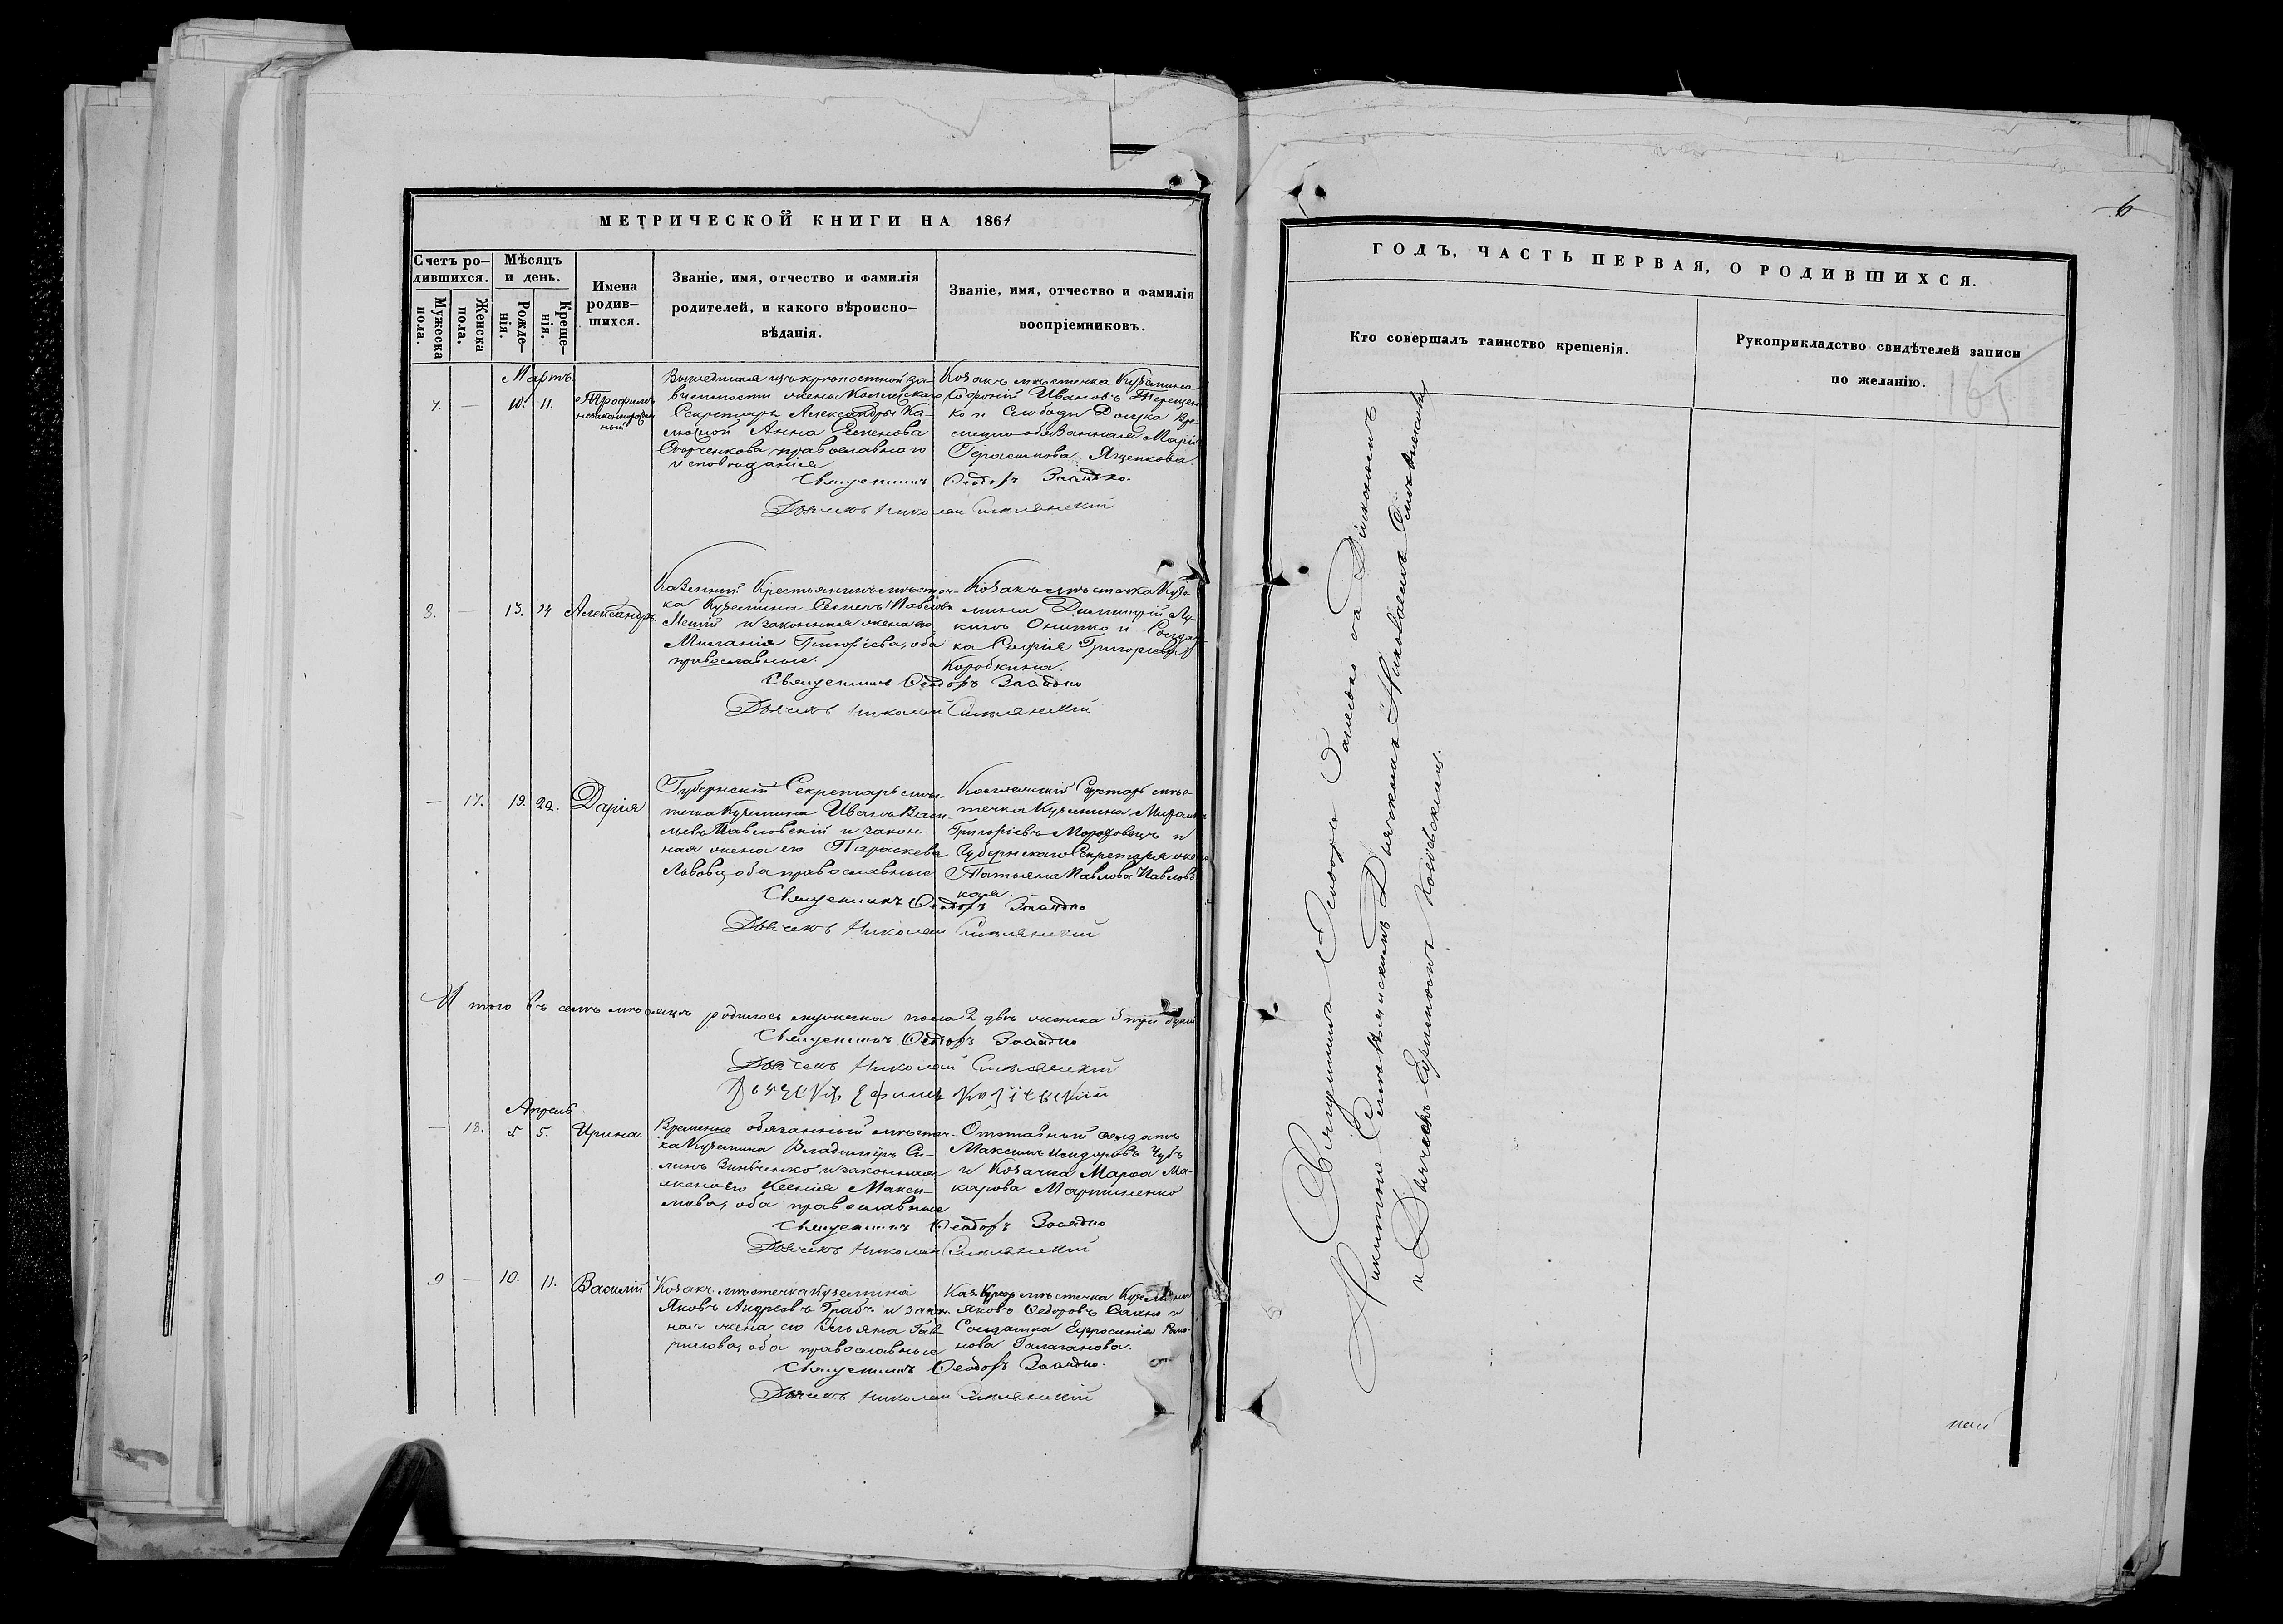 МЕТРИЧЕСКОЙ КНИГИ НА 1861
Счетъ ро-
дившихся.
Мужеска
пола.
Женска
пола.
Мѣсяцъ
и день.
Рожде-
нія.
Креще-
нія.
Имена
родив-
шихся.
Званіе, имя, отчество и фамилія
родителей, и какого вѣроиспо-
вѣданія.
Званіе, имя, отчество и фамилія
воспріемниковъ.
Мартъ
7. — 10. 11. Трофимъ
незаконнорожден
ный
Вышедшая изъ крѣпостной за-
висимости жены Коллежскаго
Секретаря Александры Ка-
Анна Семенова
православнаго
исповѣданія
Козакъ мѣстечка Куземина
Иванъ Терещен
ко и Слободы Доцка Вре-
менно обязанная Марія
Герасимова Яценкова
Священникъ Ѳеодоръ Заядко.
Дьячекъ Николай Симлянскій
8. — 13. 14 Александръ.
Казенный Крестьянинъ мѣстеч-
ка Куземина Семенъ Павловъ
и законная жена его
Меланія Григорiева, оба
православные.
Козакъ мѣстечка Кузе-
мина Димитрій Лу-
кинъ Онипко и Солдат-
ка Софія Григорьева
Коробкина.
Священникъ Ѳеодоръ Заядко
Дьячекъ Николай Симлянскій
— 17. 19. 22. Дарія
Губернскій Секретарь мѣс-
течка Куземина Иванъ Васи-
льевъ Павловскій и закон-
ная жена его Параскева
Львова, оба православные
Коллежскій Секретарь мѣс-
течка Куземина Михаилъ
Григоріевъ Мороховецъ и
Губернскаго Секретаря жена
Татьяна Павлова Павловс-
кая.
Священникъ Ѳеодоръ Заядко
Дьячекъ Николай Симлянскій
Итого въ семъ мѣсяцѣ родилось мужеска пола 2 двѣ женска 3 три души
Священникъ Ѳеодоръ Заядко
Дьячекъ Николай Симлянскій
Дьячекъ Ефимъ
Апрель
— 18. 5 5. Ирина.
Временно обязанный мѣстеч-
ка Куземина Владимiръ Си-
линъ Зинченко и законная
жена его Ксенія Макси-
мова, оба православные
Отставный солдатъ
Максимъ Исидоровъ Чубъ
и Козачка Марѳа Ма-
карова Мартиненко
Священникъ Ѳеодоръ Заядко
Дьячекъ Николай Симлянскій
9 — 10. 11. Василій
Козакъ мѣстечка Куземина
Яковъ Андреевъ Грабъ и закон
ная жена его Ульяна Гав-
рилова, оба православные
Козакъ мѣстечка Куземина
Яковъ Ѳедоровъ и
Солдатка Ефросинія Рома-
нова Галаганова.
Священникъ Ѳеодоръ Заядко.
Дьячекъ Николай Симлянскій
6
ГОДЪ, ЧАСТЬ ПЕРВАЯ, О РОДИВШИХСЯ.
Кто совершалъ таинство крещенія.
Рукоприкладство свидѣтелей записи
по желанію.
165
Священникъ Ѳеодоръ Заядко съ Діакономъ
Дьячкомъ Николаемъ Симлянскимъ
и Дьячкомъ Ефимомъ